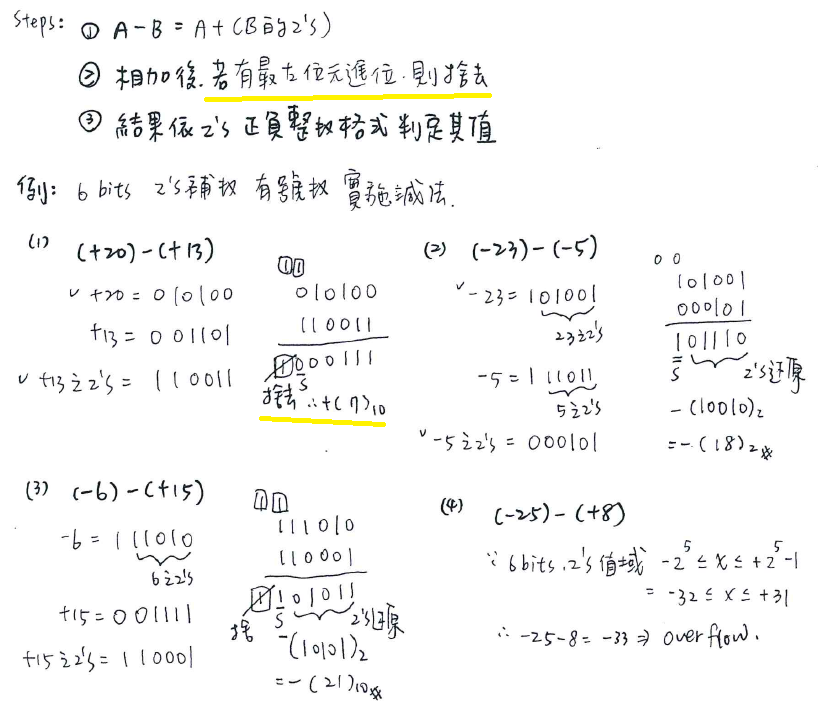 Steps: ① A-B = A+(B的2's)
② 相加後.若有最左位元進位.則捨去
③ 結果依2's正負整数格式判定其值
例: 6 bits 2's補数 有號数 實施減法.
(1) (+20)-(+13)
✓ +20 = 010100
+13 = 001101
✓ +13之2's = 110011
11
010100
110011
1000111
S
捨去 ∴+(7)10
(2) (-23)-(-5)
✓ -23 = 101001
23之2's
-5 = 111011
5之2's
✓ -5之2's = 000101
00
101001
000101
101110
S 2's还原
-(10010)2
=-(18)2※
(3) (-6)-(+15)
-6 = 111010
6之2's
+15 = 001111
+15之2's = 110001
11
111010
110001
1101011
捨 S 2's还原
-(10101)2
=-(21)10※
(4) (-25)-(+8)
∵ 6bits.2's值域 -2^5 ≤ x ≤ +2^5-1
= -32 ≤ x ≤ +31
∴ -25-8 = -33 ⇒ overflow.